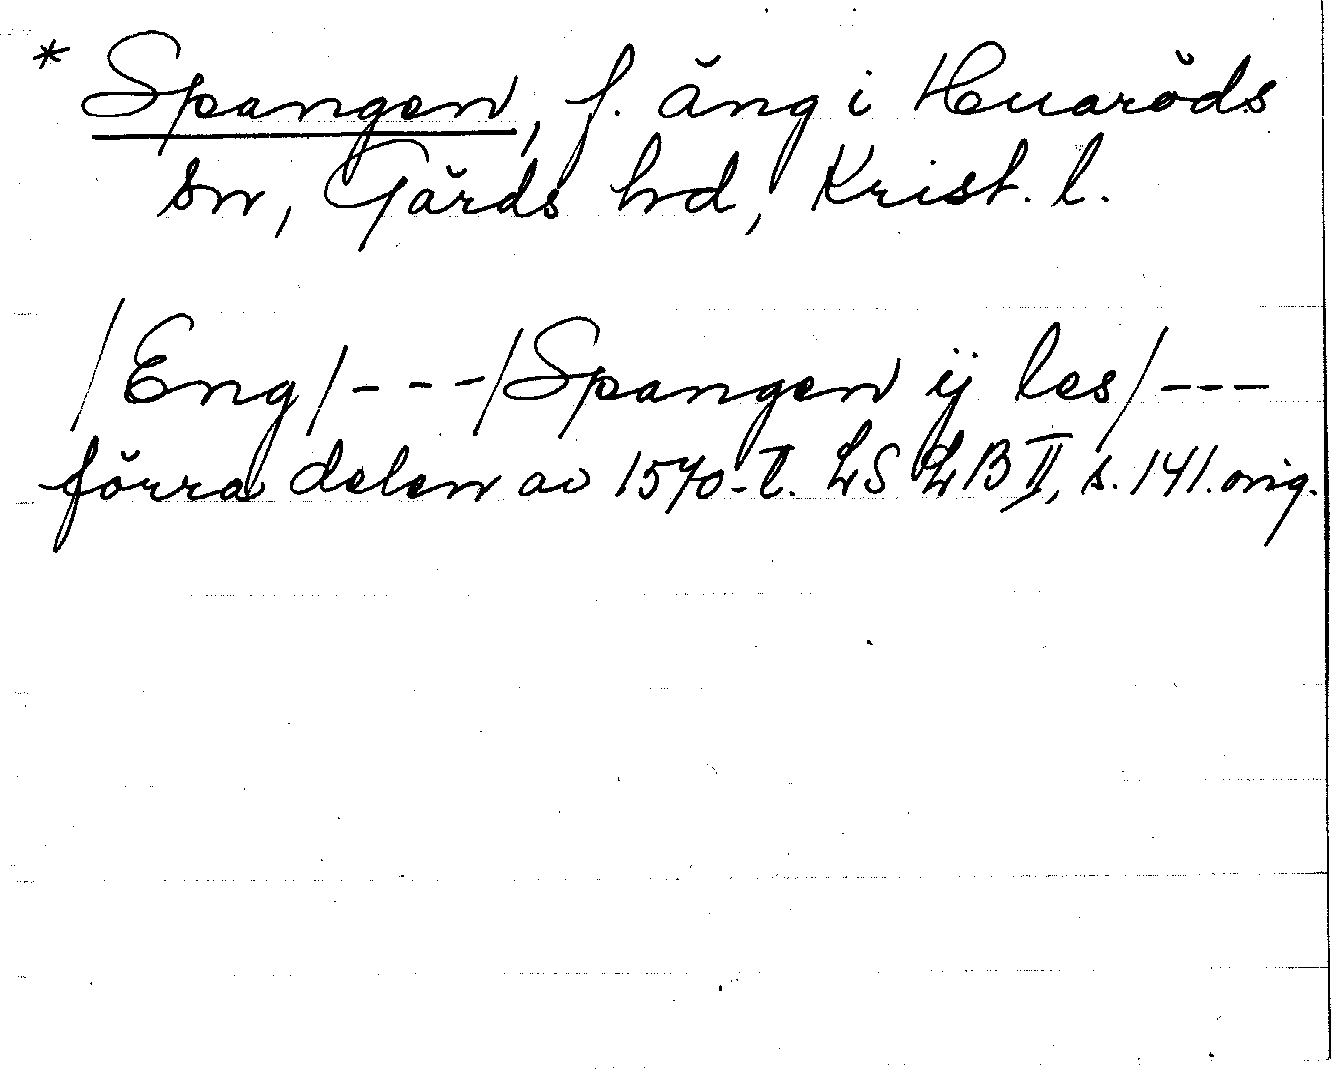 * Spangen, f. äng i Huaröds
sn, Gärds hd, Krist. l.
/Eng/---/Spangen ij les/---
förra delen av 1570-t. LS LB II, s. 141. orig.